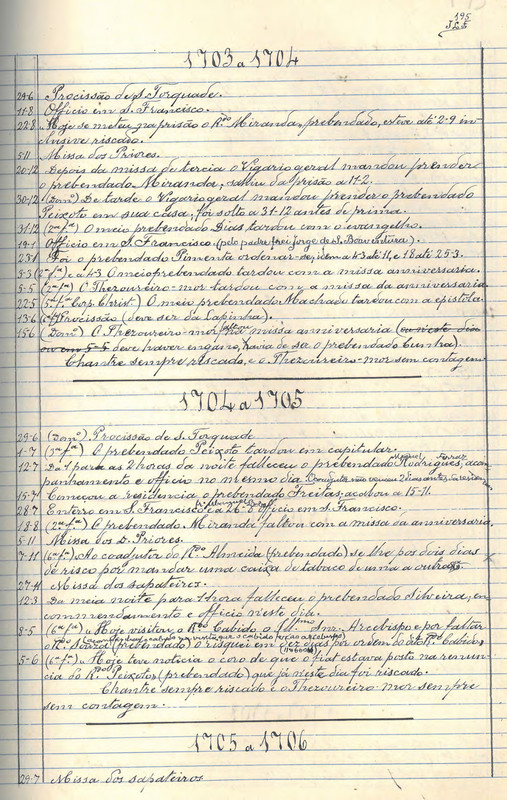 195
1703 a 1704
29-6 Procissão de S. Torquade.
11-8 Officio em S. Francisco.
22-8 Hoje se meteu na prisão o Rdo Miranda, prebendado, esteve até 2-9 in-
clusive riscado.
5-11 Missa dos Priores.
20-12 Depois da missa de tercia o Vigario geral mandou prender
o prebendado Miranda, sahiu da prisão a 11-2.
30-12 (Domo) De tarde o Vigario geral mandou prender o prebendado
Peixoto em sua casa, foi solto a 31-12 antes de prima.
31-12 (2ª fª) O meio prebendado Dias tardou com o evangelho.
19-1 Officio em S. Francisco (pelo padre frei Jorge de S. Boaventura).
23-1 Foi o prebendado Pimenta ordenar-se, idem a 4-3 até 11, e 18 até 25-3.
3-3 (2ª fª) e a 4-3 O meio prebendado tardou com a missa anniversaria.
5-5 (2ª fª) O Thezoureiro-mor tardou com a missa da anniversaria
22-5 5ª fª Corp. Christ O meio prebendado Machado tardou com a epistola.
13-6 (6ª fª) Procissão (deve ser da Lapinha).
15-6 (Domo) O Thezoureiro-mor faltou na missa anniversaria (ou neste dia
ou em 5-5 deve haver engano, havia de ser o prebendado Cunha).
Chantre sempre riscado, e o Thezoureiro-mor sem contagem
1704 a 1705
29-6 (Domo) Procissão de S. Torquade
1-7 (3ª fª) O prebendado Peixoto tardou em capitular.
12-7 Da 1 para as 2 horas da noite falleceu o prebendado Manoel Rodrigues Ferraz, acom-
panhamento e officio no mesmo dia.
15-7 Começou a residencia o prebendado Freitas, acabou a 15-11.
28-7 Enterro em S. Francisco e a 26-8 officio em S. Francisco.
18-8 (2ª fª) O prebendado Miranda faltou com a missa da anniversaria.
5-11 Missa dos D. Priores.
7-11 (6ª fª) Ao coadjutor do Rdo Almeida (prebendado) se lhe pos dois dias
de risco por mandar uma caixa de tabaco de uma a outra
27-11 Missa dos sapateiros.
12-3 Da meia noite para 1 hora falleceu o prebendado Silveira, en-
commendamento e officio n'este dia.
8-5 (6ª fª) Hoje visitou o Rdo Cabido o Illmo Snr. Arcebispo e por faltar
o Rdo Souza (prebendado) o risquei em dez dias por ordem do dito Rdo Cabido.
5-6 (6ª fª) Hoje teve noticia o coro de que o fiat estava posto na renun-
cia do Rdo Peixoto (prebendado) que já n'este dia foi riscado.
Chantre sempre riscado e o Thezoureiro-mor sempre
sem contagem.
1705 a 1706
29-7 Missa dos sapateiros